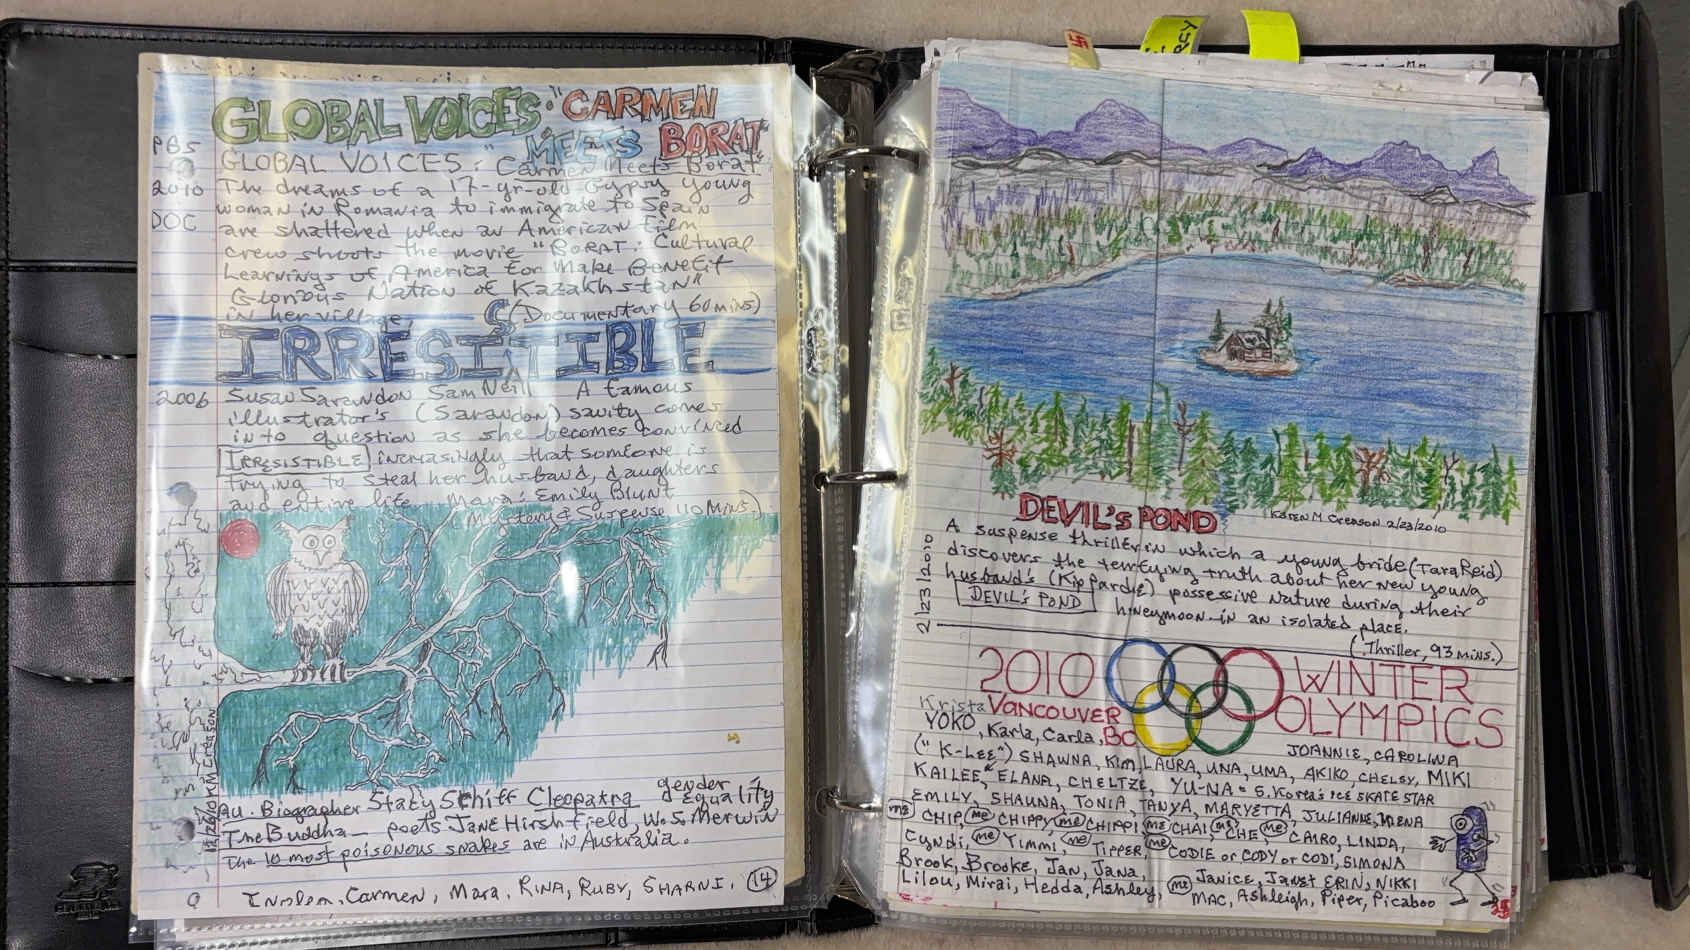 GLOBAL VOICES: "CARMEN
MEETS BORAT"
PBS
GLOBAL VOICES: "Carmen Meets Borat"
2010
The dreams of a 17-yr-old Gypsy young
woman in Romania to immigrate to Spain
DOC
are shattered when an American film
crew shoots the movie "BORAT: Cultural
Learnings of America for Make Benefit
Glorious Nation of Kazakhstan"
in her village (Documentary 60 mins)
IRRESISTIBLE
2006
Susan Sarandon Sam Neill A famous
illustrator's (Sarandon) sanity comes
into question as she becomes convinced
IRRESISTIBLE increasingly that someone is
trying to steal her husband, daughters
and entire life Mara: Emily Blunt
(Mystery & Suspense 110 Mins.)
KM Creason
au. Biographer Stacy Schiff Cleopatra gender Equality
The Buddha - poets Jane Hirshfield, W.S. Merwin
The 10 most poisonous snakes are in Australia.
Carmen, Mara, RINA, RUBY, SHARNI, 14
DEVIL'S POND
KAREN M CREASON 2/23/2010
2/23/2010
A suspense thriller in which a young bride (Tara Reid)
discovers the terrifying truth about her new young
husband's (Kip Pardue) possessive nature during their
DEVIL'S POND honeymoon in an isolated place.
(Thriller, 93 mins.)
2010 WINTER
Krista VANCOUVER OLYMPICS
YOKO, Karla, Carla, BC JOANNIE, CAROLINA
("K-LEE") SHAWNA, Kim, LAURA, UNA, UMA, AKIKO, CHELSY, MIKI
KAILEE" ELANA, CHELTZE, YU-NA = S. Korea's ICE SKATE STAR
EMILY, SHAUNA, TONIA, TANYA, MARYETTA, JULIANNE,
me CHIP, me CHIPPY me CHIPPI me CHAI, me CHE, me CAIRO, LINDA,
Cyndi, me Yimmi, me TIPPER, me CODIE or CODY or CODI, SIMONA
Brook, Brooke, Jan, Jana, JANICE, JANET ERIN, NIKKI
Lilou, Mirai, Hedda, Ashley, me MAC, Ashleigh, Piper, Picaboo